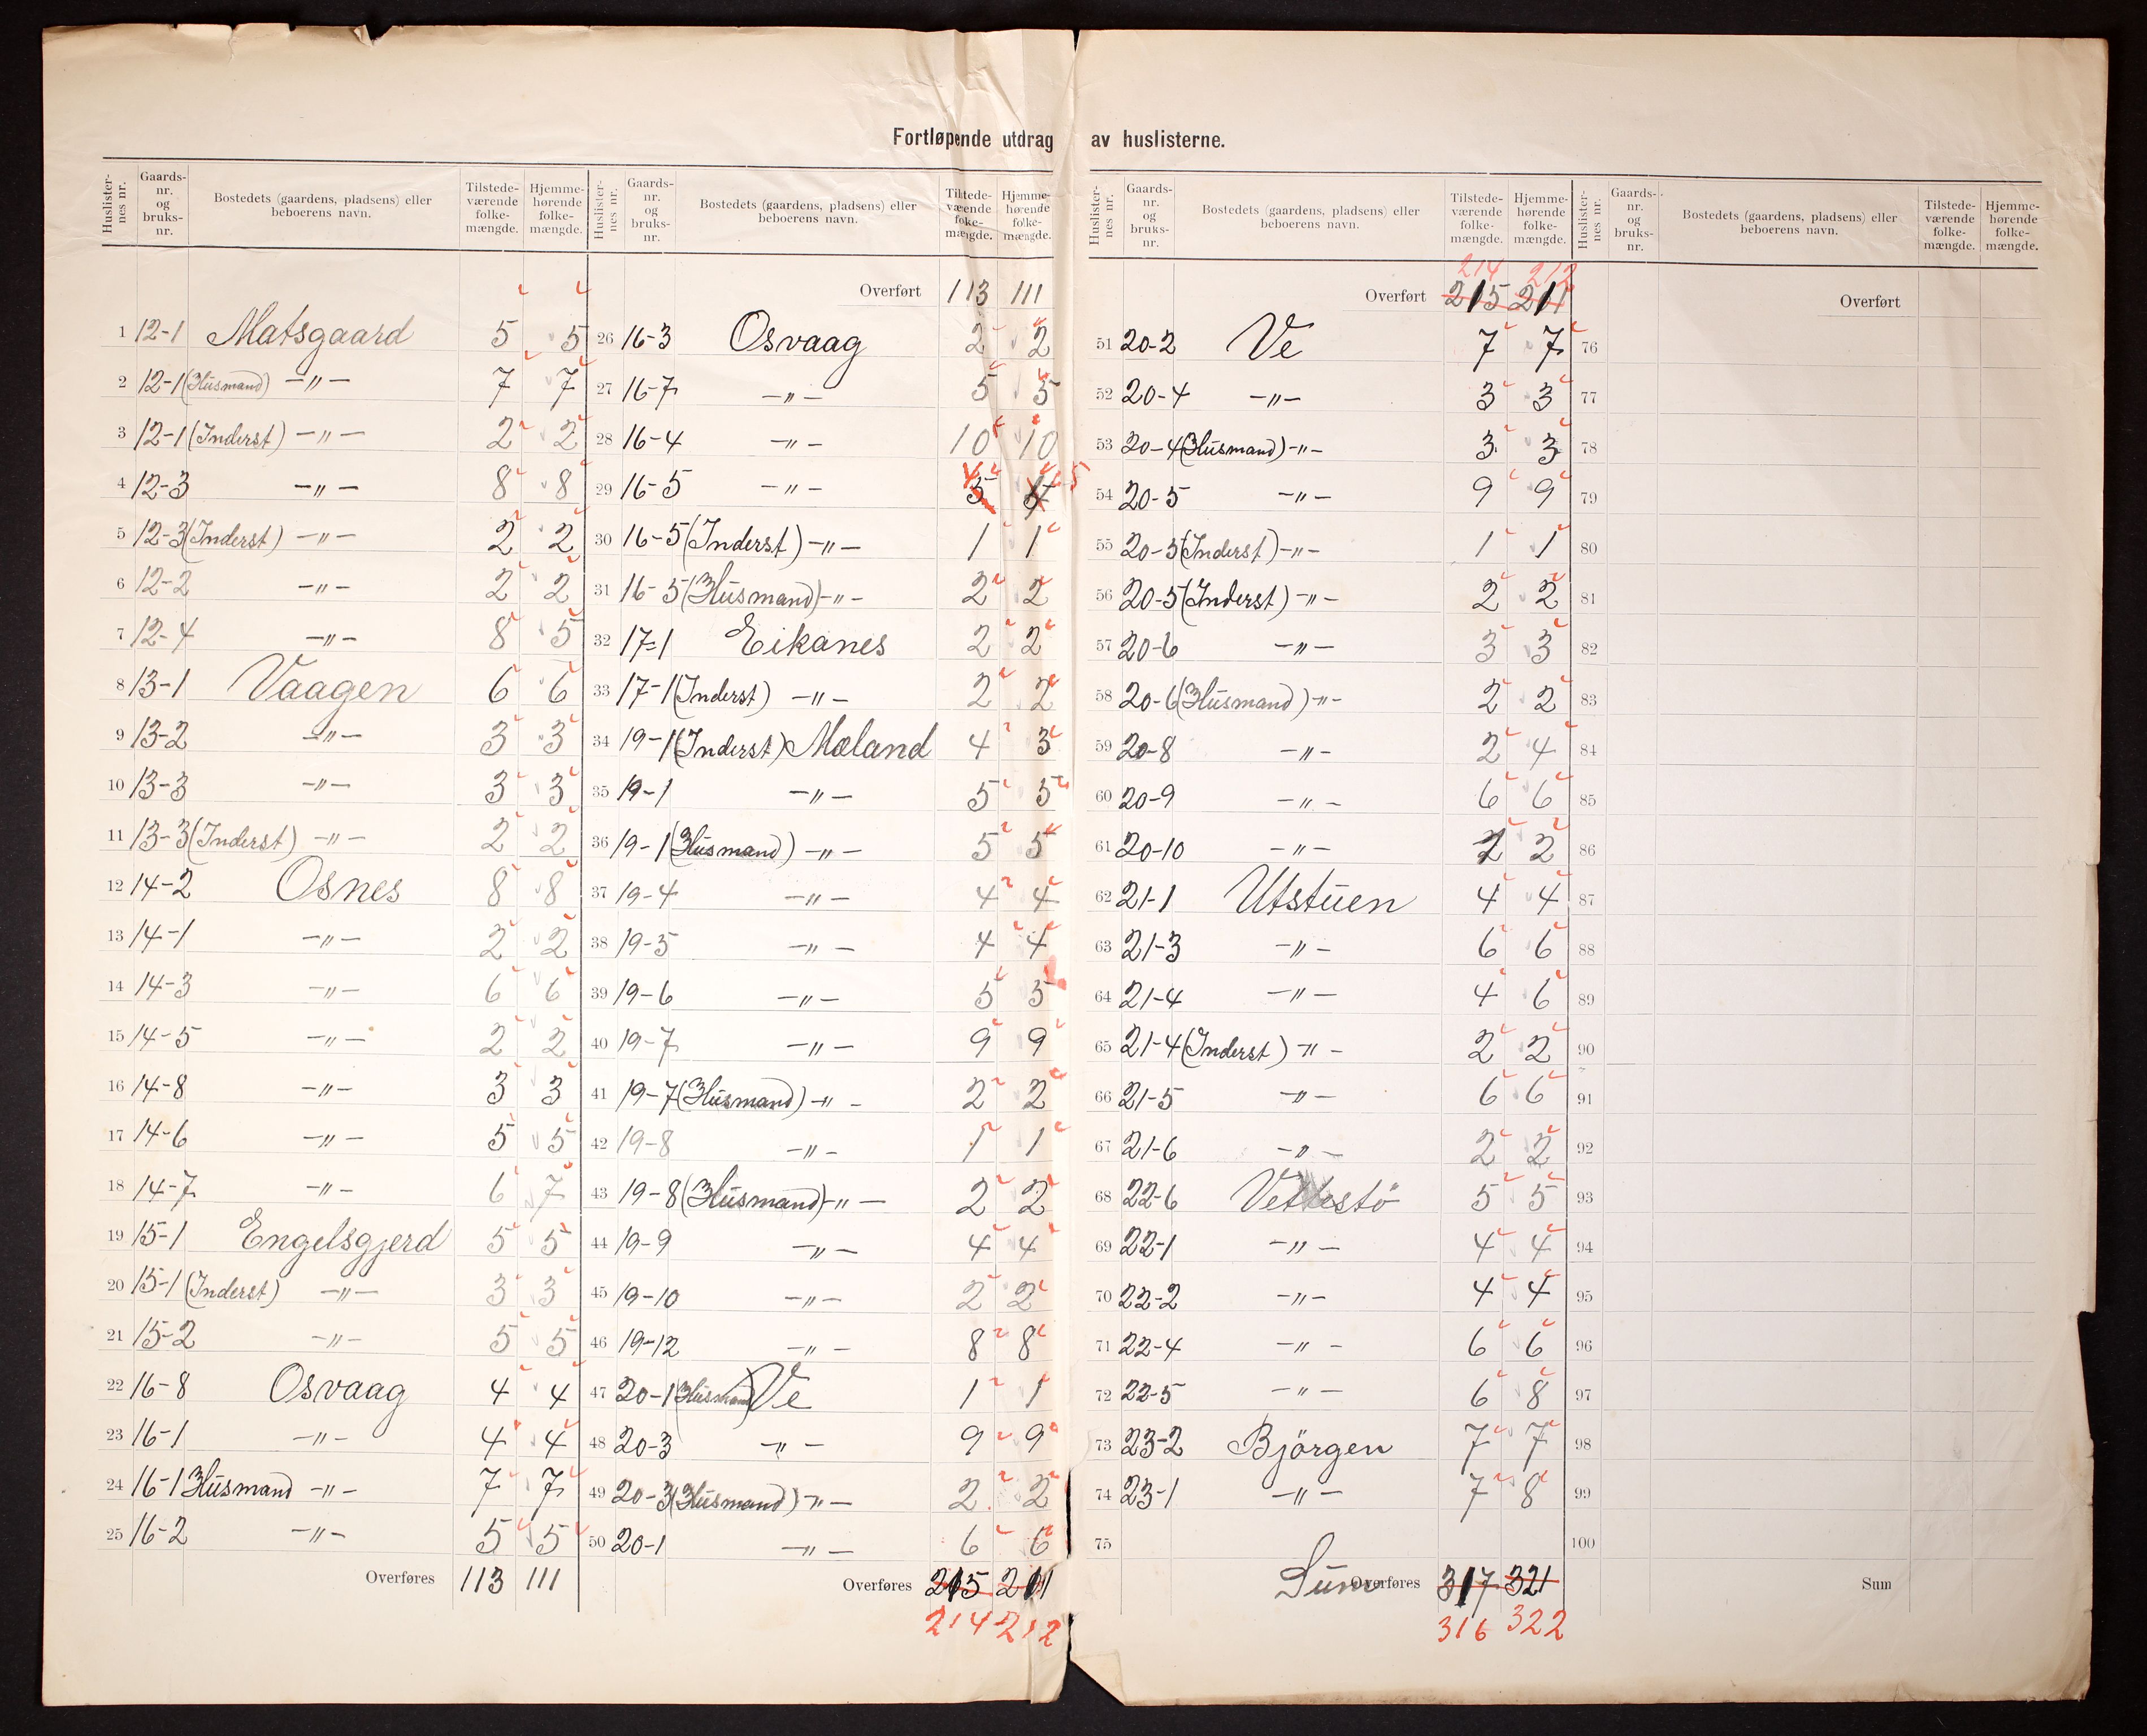 Fortløpende utdrag av huslisterne.
Huslister-nes nr. Gaards-nr. og bruks-nr. Bostedets (gaardens, pladsens) eller beboerens navn. Tilstede-værende folke-mængde. Hjemme-hørende folke-mængde.
1 12-1 Matsgaard 5 5
2 12-1 (Husmand) -"- 7 7
3 12-1 (Inderst) -"- 2 2
4 12-3 -"- 8 8
5 12-3 (Inderst) -"- 2 2
6 12-2 -"- 2 2
7 12-4 -"- 8 5
8 13-1 Vaagen 6 6
9 13-2 -"- 3 3
10 13-3 -"- 3 3
11 13-3 (Inderst) -"- 2 2
12 14-2 Osnes 8 8
13 14-1 -"- 2 2
14 14-3 -"- 6 6
15 14-5 -"- 2 2
16 14-8 -"- 3 3
17 14-6 -"- 5 5
18 14-7 -"- 6 7
19 15-1 Engelsgjerd 5 5
20 15-1 (Inderst) -"- 3 3
21 15-2 -"- 5 5
22 16-8 Osvaag 4 4
23 16-1 -"- 4 4
24 16-1 Husmand -"- 7 7
25 16-2 -"- 5 5
Overføres 113 111
Huslister-nes nr. Gaards-nr. og bruks-nr. Bostedets (gaardens, pladsens) eller beboerens navn. Tilstede-værende folke-mængde. Hjemme-hørende folke-mængde.
Overført 113 111
26 16-3 Osvaag 2 2
27 16-7 -"- 5 5
28 16-4 -"- 10 10
29 16-5 -"- 5 4 4 5
30 16-5 (Inderst) -"- 1 1
31 16-5 (Husmand) -"- 2 2
32 17-1 Eikanes 2 2
33 17-1 (Inderst) -"- 2 2
34 19-1 (Inderst) Moland 4 3
35 19-1 -"- 5 5
36 19-1 (Husmand) -"- 5 5
37 19-4 -"- 4 4
38 19-5 -"- 4 4
39 19-6 -"- 5 5
40 19-7 -"- 9 9
41 19-7 (Husmand) -"- 2 2
42 19-8 -"- 1 1
43 19-8 (Husmand) -"- 2 2
44 19-9 -"- 4 4
45 19-10 -"- 2 2
46 19-12 -"- 8 8
47 20-1 (Husmand) Ve 1 1
48 20-3 -"- 9 9
49 20-3 (Husmand) -"- 2 2
50 20-1 -"- 6 6
Overføres 215 211
214 212
Huslister-nes nr. Gaards-nr. og bruks-nr. Bostedets (gaardens, pladsens) eller beboerens navn. Tilstede-værende folke-mængde. Hjemme-hørende folke-mængde.
214 212
Overført 215 211
51 20-2 Ve 7 7
52 20-4 -"- 3 3
53 20-4 (Husmand) -"- 3 3
54 20-5 -"- 9 9
55 20-5 (Inderst) -"- 1 1
56 20-5 (Inderst) -"- 2 2
57 20-6 -"- 3 3
58 20-6 (Husmand) -"- 2 2
59 20-8 -"- 2 4
60 20-9 -"- 6 6
61 20-10 -"- 2 2
62 21-1 Utstuen 4 4
63 21-3 -"- 6 6
64 21-4 -"- 4 6
65 21-4 (Inderst) -"- 2 2
66 21-5 -"- 6 6
67 21-6 -"- 2 2
68 22-6 Vettestö 5 5
69 22-1 -"- 4 4
70 22-2 -"- 4 4
71 22-4 -"- 6 6
72 22-5 -"- 6 8
73 23-2 Björgen 7 7
74 23-1 -"- 7 8
75
Sum Overføres 317 321
316 322
Huslister-nes nr. Gaards-nr. og bruks-nr. Bostedets (gaardens, pladsens) eller beboerens navn. Tilstede-værende folke-mængde. Hjemme-hørende folke-mængde.
Overført
76
77
78
79
80
81
82
83
84
85
86
87
88
89
90
91
92
93
94
95
96
97
98
99
100
Sum